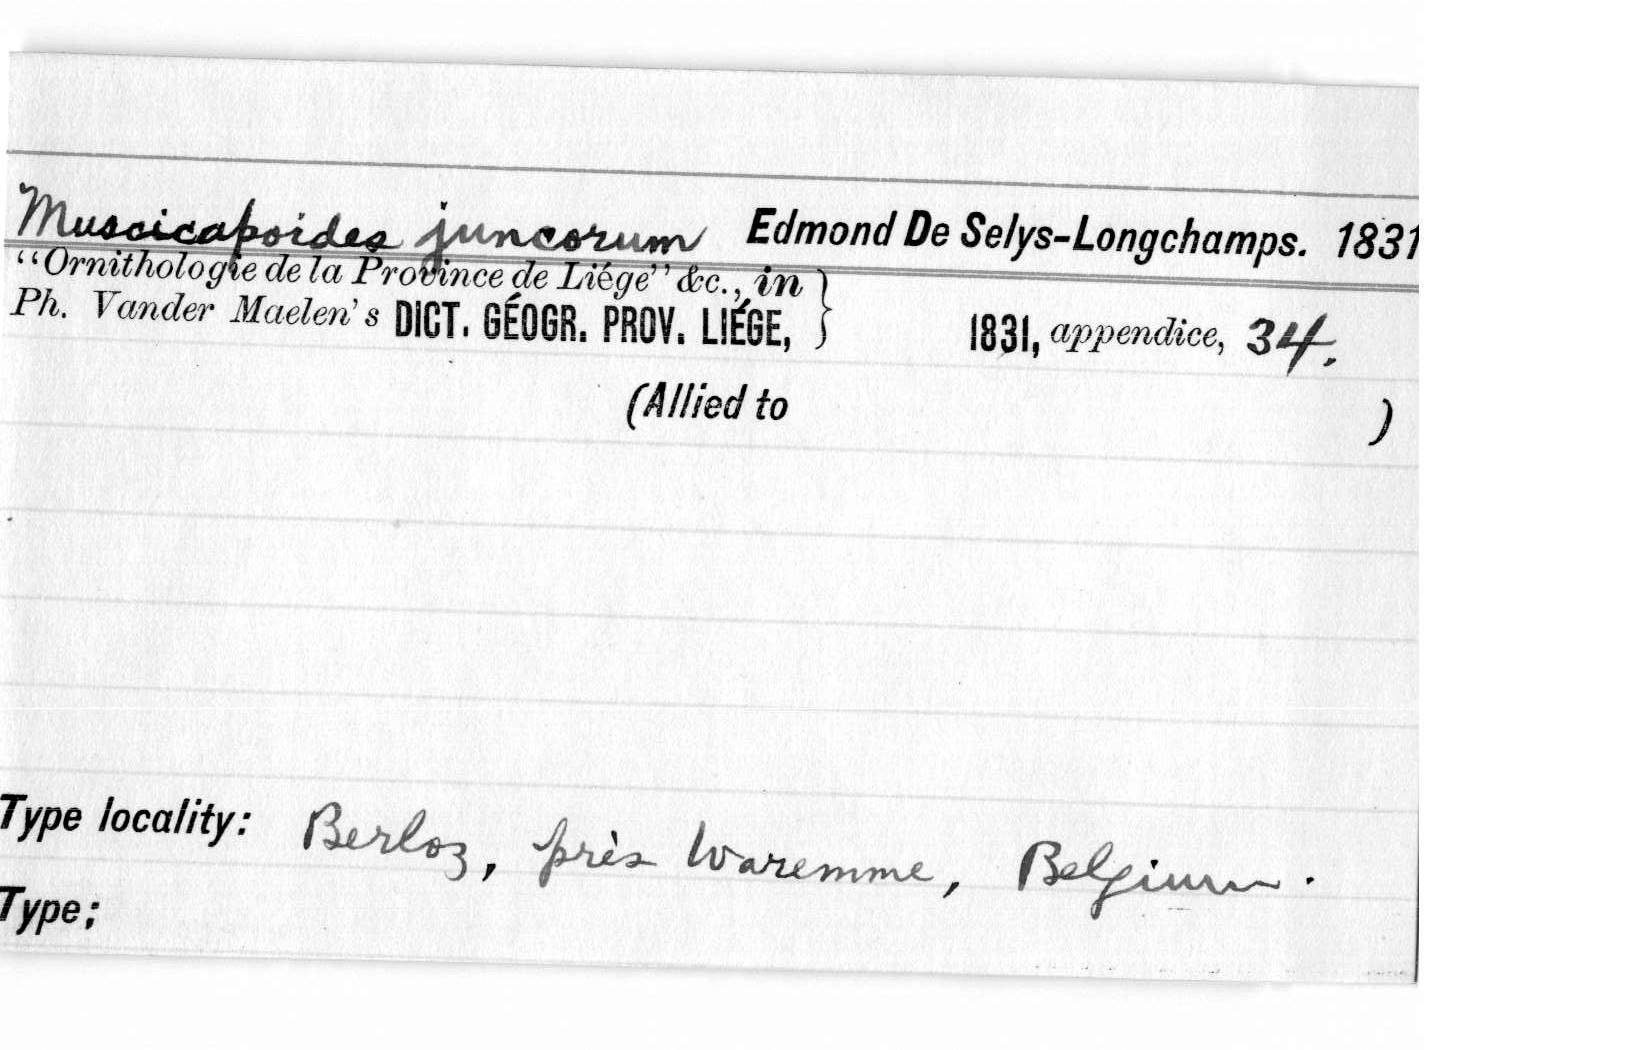 Muscicapoides juncorum Edmond De Selys-Longchamps. 1831
"Ornithologie de la Province de Liége" &c., in }
Ph. Vander Maelen's DICT. GÉOGR. PROV. LIÉGE, 1831, appendice, 34.
(Allied to )
Type locality: Berloz, près Waremme, Belgium.
Type;